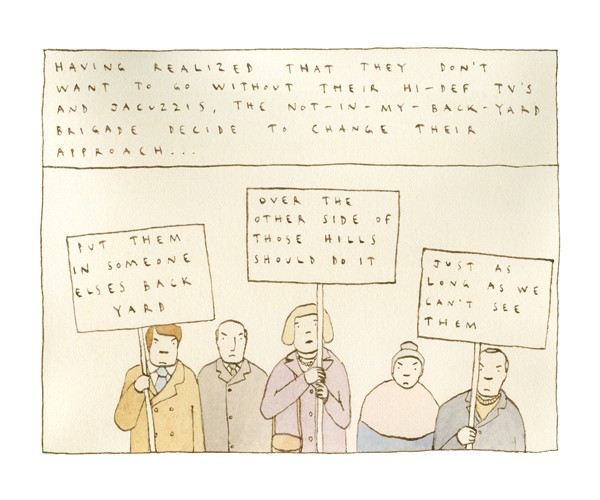 HAVING REALIZED THAT THEY DON'T
WANT TO GO WITHOUT THEIR HI-DEF TV'S
AND JACUZZIS, THE NOT-IN-MY-BACK-YARD
BRIGADE DECIDE TO CHANGE THEIR
APPROACH...
PUT THEM
IN SOMEONE
ELSES BACK
YARD
OVER THE
OTHER SIDE OF
THOSE HILLS
SHOULD DO IT
JUST AS
LONG AS WE
CAN'T SEE
THEM